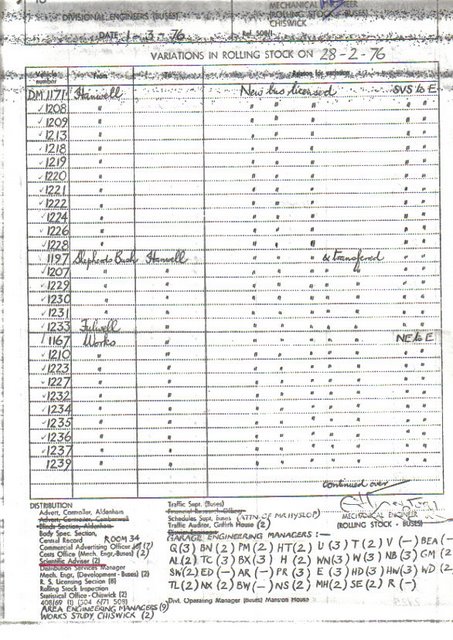 DIVISIONAL ENGINEERS (BUSES)
MECHANICAL ENGINEER
(ROLLING STOCK - BUSES)
CHISWICK
DATE 1 - 3 - 76
Ref. 508/1
VARIATIONS IN ROLLING STOCK ON 28-2-76
Vehicle number From To Reason for variation
DM 1171 Hanwell New bus licensed SVS to E
1208 " " " " " "
1209 " " " " " "
1213 " " " " " "
1218 " " " " " "
1219 " " " " " "
1220 " " " " " "
1221 " " " " " "
1222 " " " " " "
1224 " " " " " "
1226 " " " " " "
1228 " " " " " "
1197 Shepherds Bush Hanwell " " " & transferred " "
1207 " " " " " " " " "
1229 " " " " " " " " "
1230 " " " " " " " " "
1231 " " " " " " " " "
1233 Fulwell " " " " " " " "
1167 Works " " " " " " NE to E
1210 " " " " " " " " "
1223 " " " " " " " " "
1227 " " " " " " " " "
1232 " " " " " " " " "
1234 " " " " " " " " "
1235 " " " " " " " " "
1236 " " " " " " " " "
1237 " " " " " " " " "
1239 " " " " " " " " "
continued over
MECHANICAL ENGINEER
(ROLLING STOCK - BUSES)
DISTRIBUTION
Advert, Controller, Aldenham
Advert, Controller, Camberwell
Blinds Section, Aldenham
Body Spec. Section,
Central Record ROOM 34
Commercial Advertising Officer (7)
Costs Office (Mech. Engr, Buses) (2)
Scientific Adviser (2)
Distribution Services Manager
Mech. Engr, (Development - Buses) (2)
R. S. Licensing Section (8)
Rolling Stock Inspection
Statistical Office - Chiswick (2)
408/69 11J (504 6/71 508)
AREA ENGINEERING MANAGERS (9)
WORKS STUDY, CHISWICK (2)
Traffic Supt. (Buses)
Schedules Supt. Buses (ATTN. OF MR HYSLOP)
Traffic Auditor, Griffith House (2)
GARAGE ENGINEERING MANAGERS:-
Q (3) BN (2) PM (2) HT (2) U (3) T (2) V (-) BEA (-)
AL (2) TC (3) BX (3) H (2) WN (3) W (3) NB (3) GM (2)
SW (2) ED (-) AR (-) PR (3) E (3) HD (3) HW (3) WD (2)
TL (2) NX (2) BW (-) NS (2) MH (2) SE (2) R (-)
Divl. Operating Manager (Buses) Mansion House